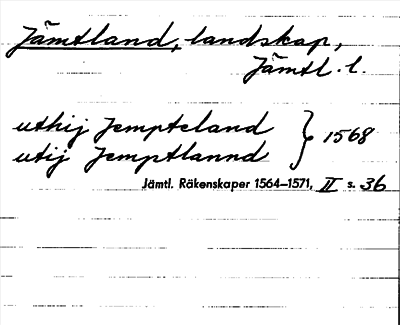 Jämtland, landskap,
Jämtl. l.
uthij Jempteland } 1568
utij Jemptlannd
Jämtl. Räkenskaper 1564–1571, II s. 36